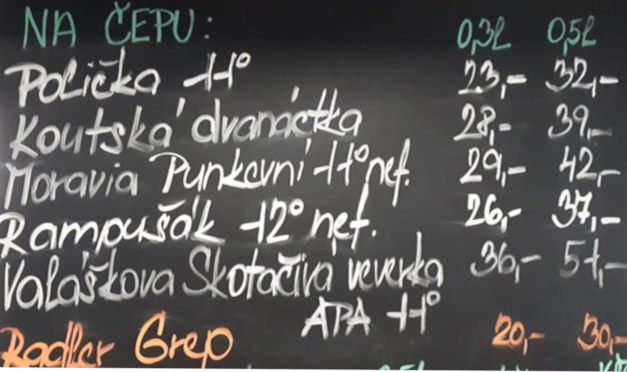 NA ČEPU: 0,3l 0,5l
Polička 11° 23,- 32,-
Koutská dvanáctka 28,- 39,-
Moravia Punkevní 11° nef. 29,- 42,-
Rampušák 12° nef. 26,- 37,-
Valáškova Skotačivá veverka 36,- 51,-
APA 11°
Radler Grep 20,- 30,-